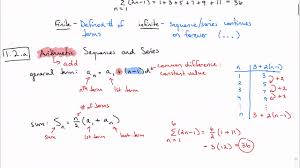 Σ (2n-1) = 1+3+5+7+9+11 = 36
n=1
finite - Defined # of terms
infinite - sequence/series continues on forever (...)
11.2.a
Arithmetic Sequences and Series
general term: aₙ = a₁ + (n-1)d
common difference: constant value
nth term
1st term
# of terms
sum: Sₙ = n/2 (a₁ + aₙ)
1st term
6
Σ (2n-1) = 6/2 (1+11)
n=1
= 3(12) = 36
n 3+2(n-1)
1 3
+2
2 5
+2
3 7
+2
4 9
n 3+2(n-1)